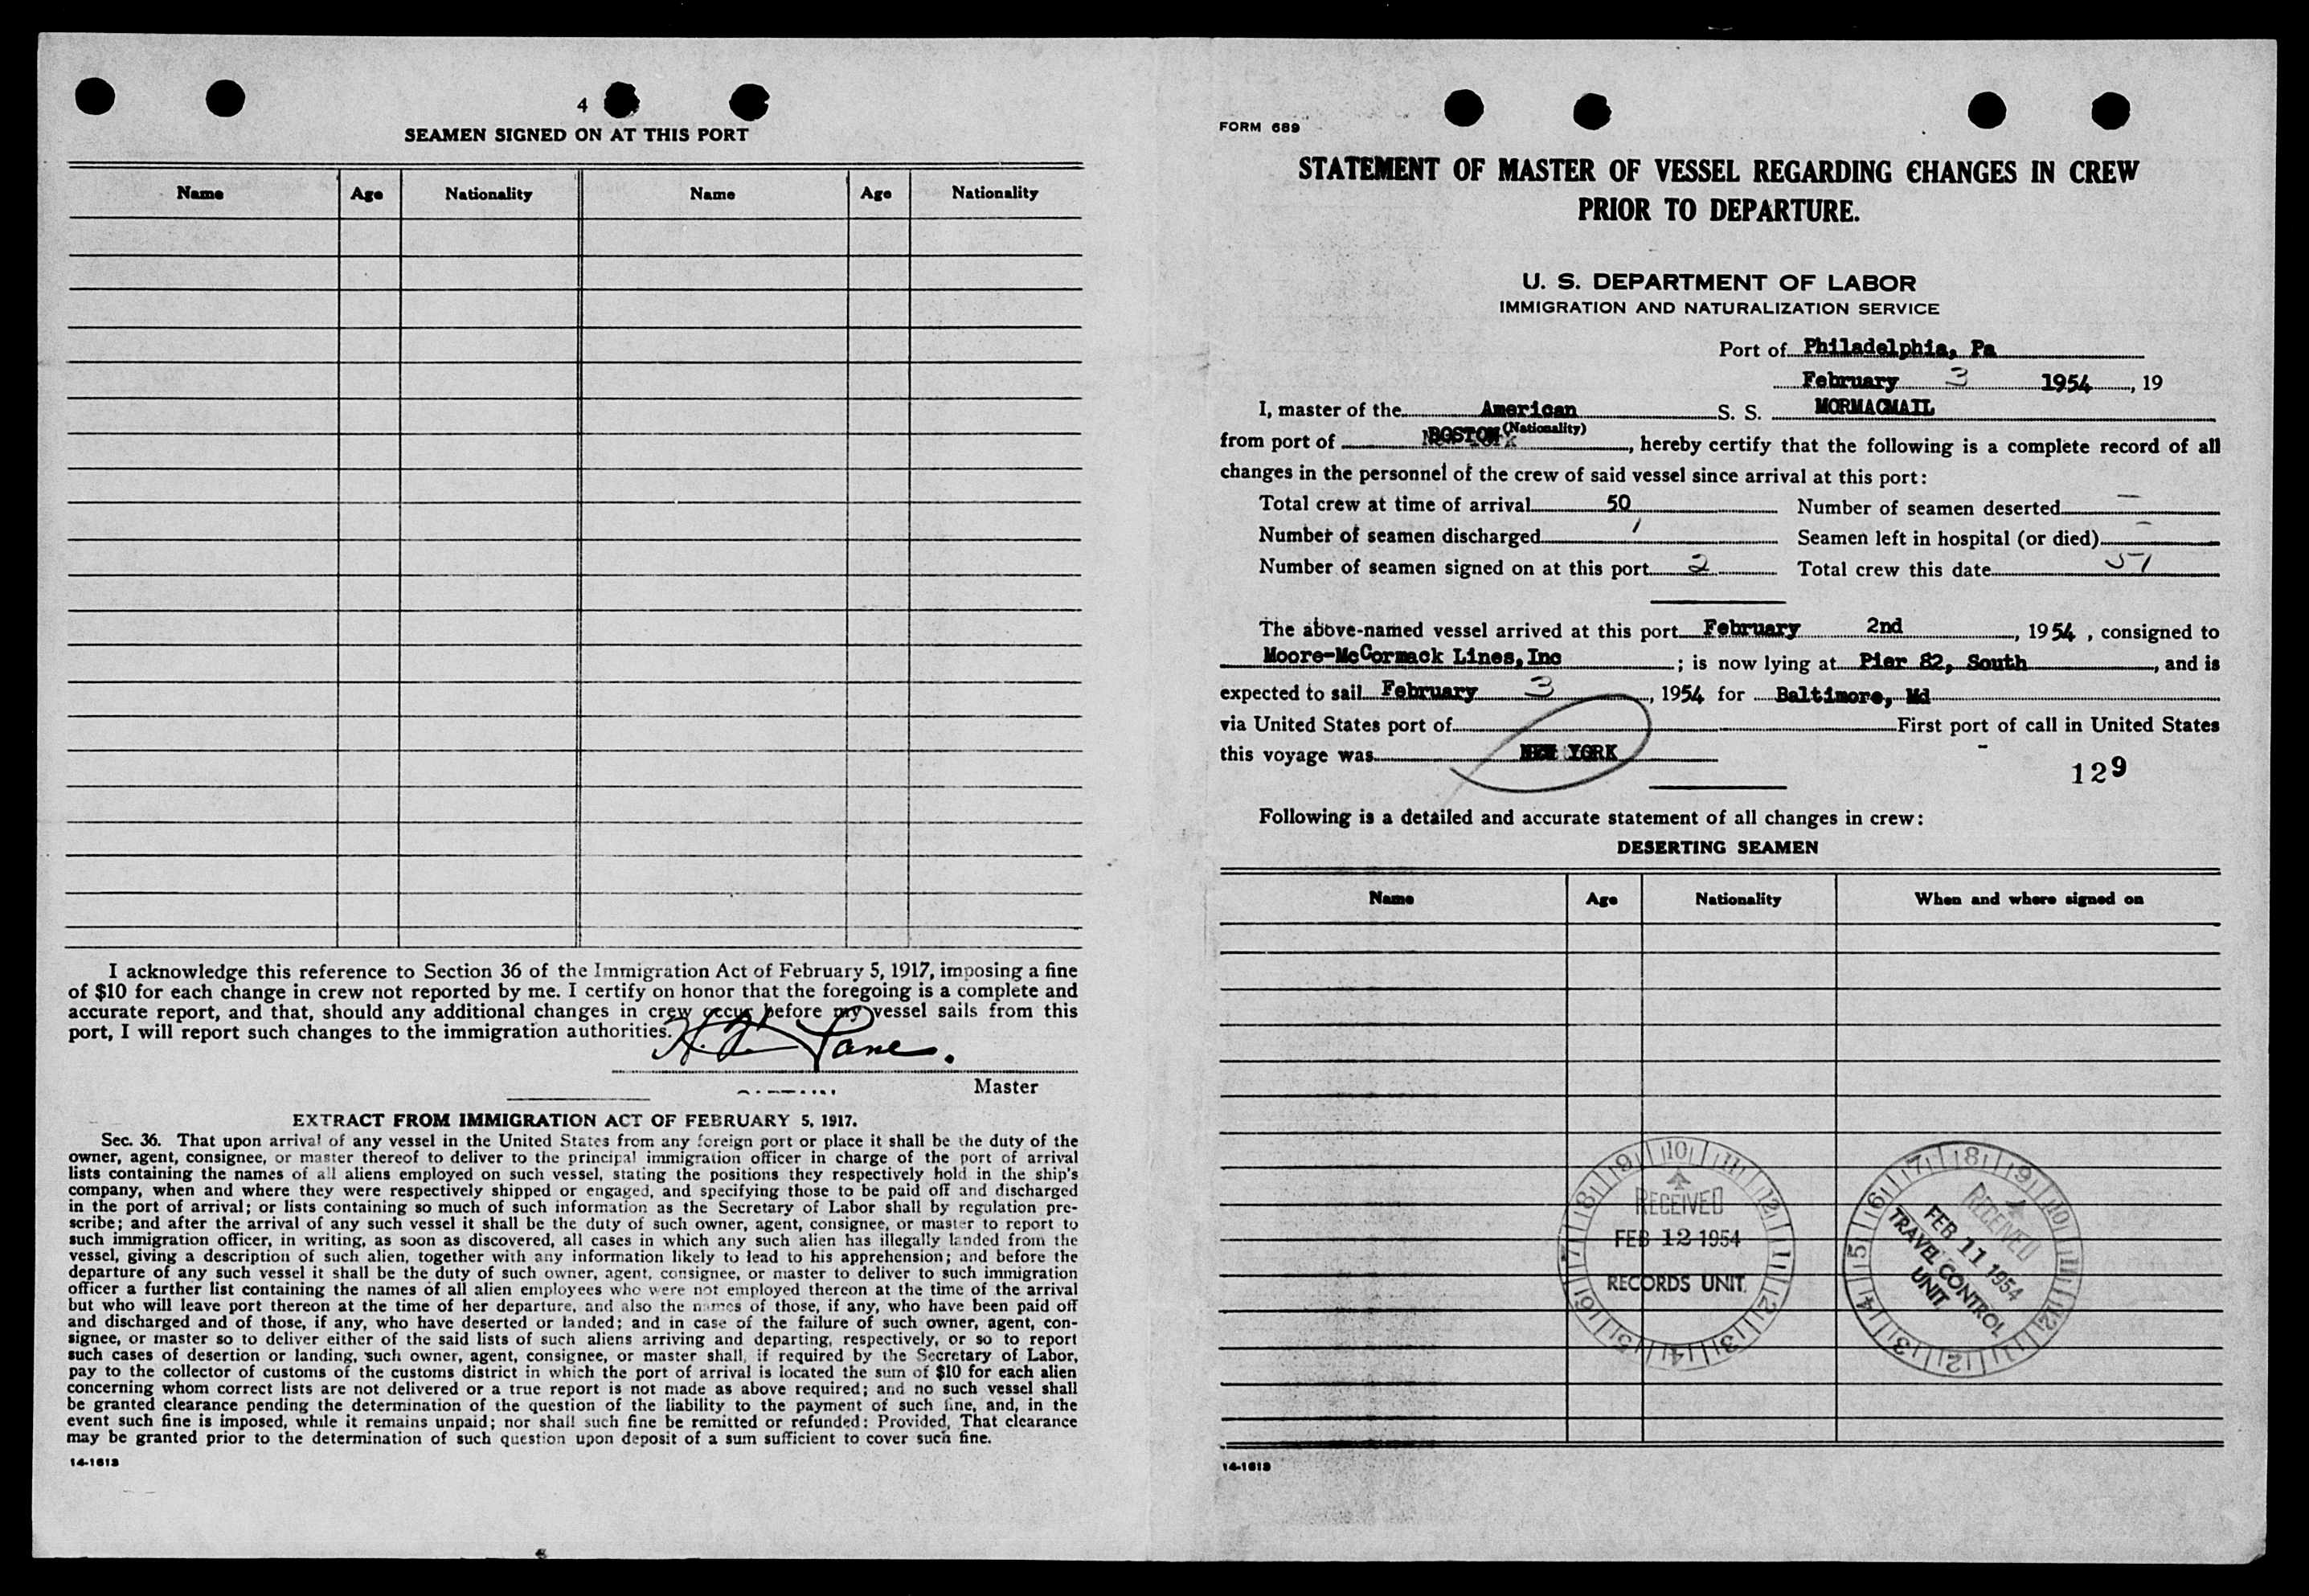 4
SEAMEN SIGNED ON AT THIS PORT
Name Age Nationality Name Age Nationality
I acknowledge this reference to Section 36 of the Immigration Act of February 5, 1917, imposing a fine
of $10 for each change in crew not reported by me. I certify on honor that the foregoing is a complete and
accurate report, and that, should any additional changes in crew occur before my vessel sails from this
port, I will report such changes to the immigration authorities.
Lane.
Master
EXTRACT FROM IMMIGRATION ACT OF FEBRUARY 5, 1917.
Sec. 36. That upon arrival of any vessel in the United States from any foreign port or place it shall be the duty of the
owner, agent, consignee, or master thereof to deliver to the principal immigration officer in charge of the port of arrival
lists containing the names of all aliens employed on such vessel, stating the positions they respectively hold in the ship's
company, when and where they were respectively shipped or engaged, and specifying those to be paid off and discharged
in the port of arrival; or lists containing so much of such information as the Secretary of Labor shall by regulation pre-
scribe; and after the arrival of any such vessel it shall be the duty of such owner, agent, consignee, or master to report to
such immigration officer, in writing, as soon as discovered, all cases in which any such alien has illegally landed from the
vessel, giving a description of such alien, together with any information likely to lead to his apprehension; and before the
departure of any such vessel it shall be the duty of such owner, agent, consignee, or master to deliver to such immigration
officer a further list containing the names of all alien employees who were not employed thereon at the time of the arrival
but who will leave port thereon at the time of her departure, and also the names of those, if any, who have been paid off
and discharged and of those, if any, who have deserted or landed; and in case of the failure of such owner, agent, con-
signee, or master so to deliver either of the said lists of such aliens arriving and departing, respectively, or so to report
such cases of desertion or landing, such owner, agent, consignee, or master shall, if required by the Secretary of Labor,
pay to the collector of customs of the customs district in which the port of arrival is located the sum of $10 for each alien
concerning whom correct lists are not delivered or a true report is not made as above required; and no such vessel shall
be granted clearance pending the determination of the question of the liability to the payment of such fine, and, in the
event such fine is imposed, while it remains unpaid; nor shall such fine be remitted or refunded: Provided, That clearance
may be granted prior to the determination of such question upon deposit of a sum sufficient to cover such fine.
14-1613
FORM 689
STATEMENT OF MASTER OF VESSEL REGARDING CHANGES IN CREW
PRIOR TO DEPARTURE.
U. S. DEPARTMENT OF LABOR
IMMIGRATION AND NATURALIZATION SERVICE
Port of Philadelphia, Pa
February 3 1954, 19
I, master of the American S. S. MORMACMAIL
(Nationality)
from port of BOSTON, hereby certify that the following is a complete record of all
changes in the personnel of the crew of said vessel since arrival at this port:
Total crew at time of arrival 50 Number of seamen deserted —
Number of seamen discharged 1 Seamen left in hospital (or died) —
Number of seamen signed on at this port 2 Total crew this date 51
The above-named vessel arrived at this port February 2nd, 1954, consigned to
Moore-McCormack Lines, Inc; is now lying at Pier 82, South, and is
expected to sail February 3, 1954 for Baltimore, Md
via United States port of First port of call in United States
this voyage was NEW YORK
129
Following is a detailed and accurate statement of all changes in crew:
DESERTING SEAMEN
Name Age Nationality When and where signed on
RECEIVED
FEB 12 1954
RECORDS UNIT
RECEIVED
FEB 11 1954
TRAVEL CONTROL
UNIT
14-1613